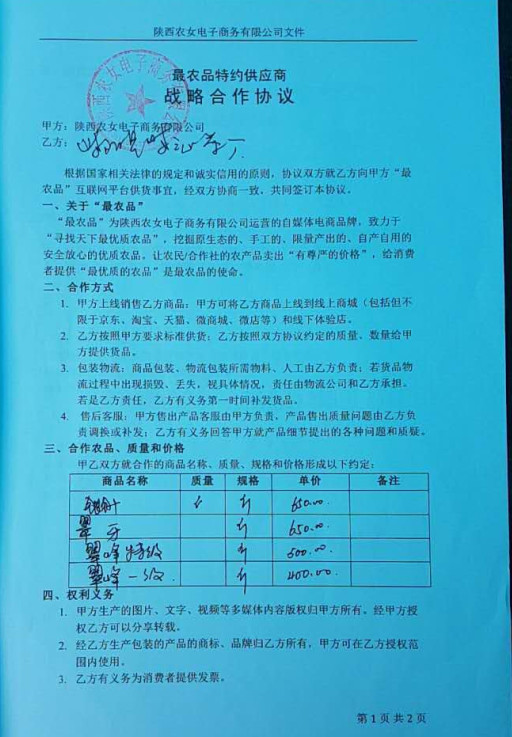 陕西农女电子商务有限公司文件
最农品特约供应商
战略合作协议
甲方：陕西农女电子商务有限公司
乙方：
根据国家相关法律的规定和诚实信用的原则，协议双方就乙方向甲方“最
农品”互联网平台供货事宜，经双方协商一致，共同签订本协议。
一、关于“最农品”
“最农品”为陕西农女电子商务有限公司运营的自媒体电商品牌，致力于
“寻找天下最优质农品”，挖掘原生态的、手工的、限量产出的、自产自用的
安全放心的优质农品，让农民/合作社的农产品卖出“有尊严的价格”，给消费
者提供“最优质的农品”是最农品的使命。
二、合作方式
1. 甲方上线销售乙方商品：甲方可将乙方商品上线到线上商城（包括但不
限于京东、淘宝、天猫、微商城、微店等）和线下体验店。
2. 乙方按照甲方要求标准供货：乙方按照双方协议约定的质量、数量给甲
方提供货品。
3. 包装物流：商品包装、物流包装所需物料、人工由乙方负责；若货品物
流过程中出现损毁、丢失，视具体情况，责任由物流公司和乙方承担。
若是乙方责任，乙方有义务第一时间补发货品。
4. 售后客服：甲方售出产品客服由甲方负责，产品售出质量问题由乙方负
责调换或补发；乙方有义务回答甲方就产品细节提出的各种问题和质疑。
三、合作农品、质量和价格
甲乙双方就合作的商品名称、质量、规格和价格形成以下约定：
商品名称 质量 规格 单价 备注
斤 650.00
翠牙 斤 650.00
翠峰特级 斤 500.00
翠峰一级 斤 400.00
四、权利义务
1. 甲方生产的图片、文字、视频等多媒体内容版权归甲方所有。经甲方授
权乙方可以分享转载。
2. 经乙方生产包装的产品的商标、品牌归乙方所有，甲方可在乙方授权范
围内使用。
3. 乙方有义务为消费者提供发票。
第 1 页 共 2 页